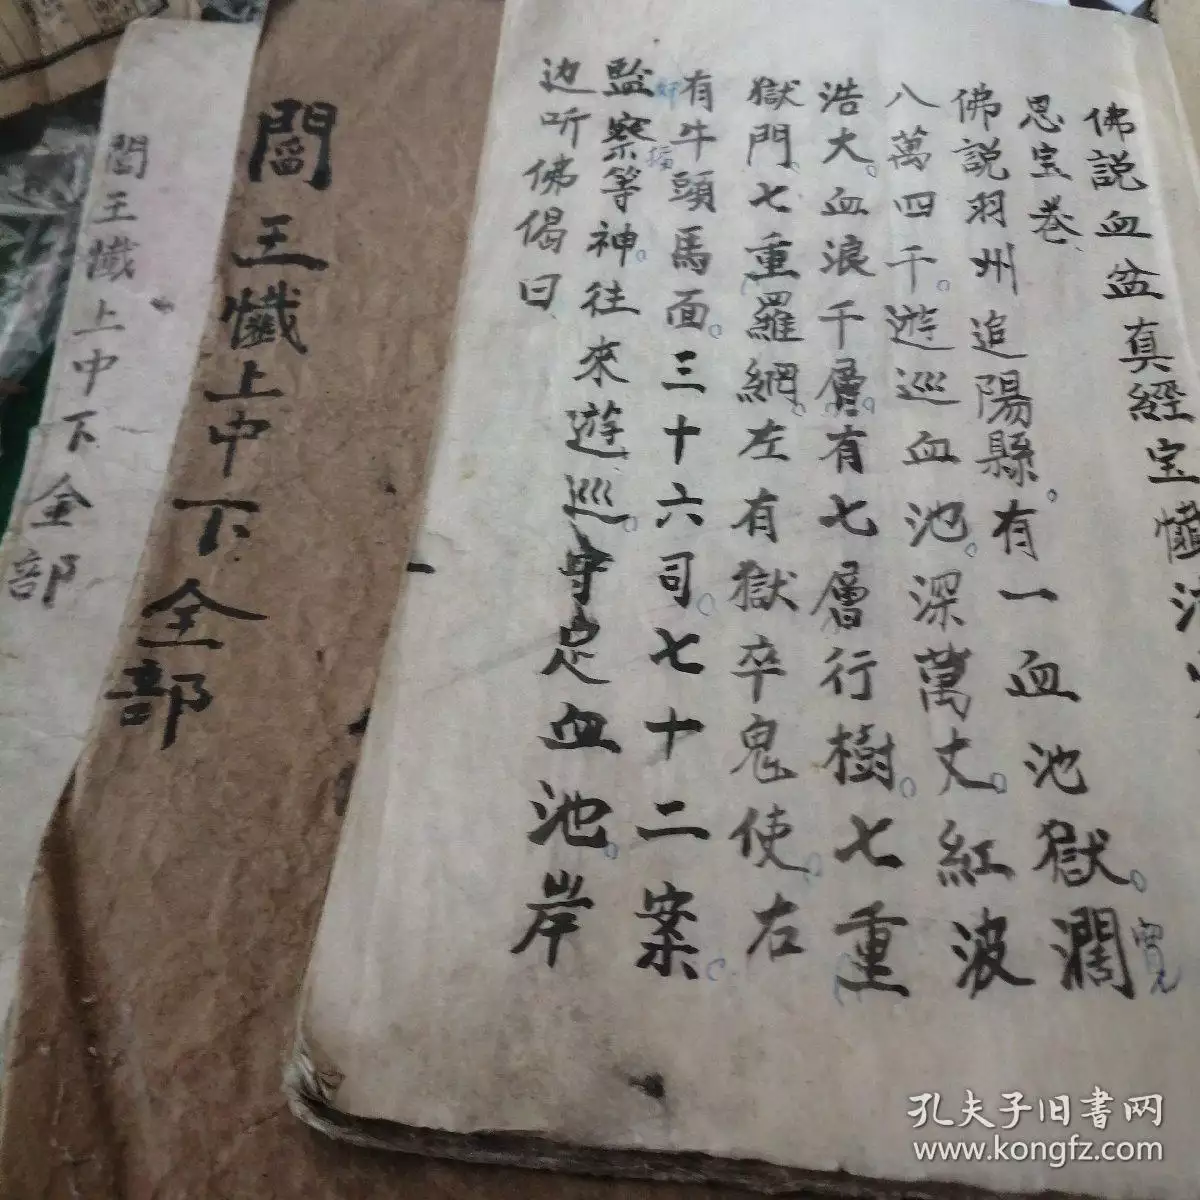 佛説血盆真經宝懺
恩宝卷
佛説羽州追陽縣。有一血池獄。濶
寛
八萬四千。遊巡血池。深萬丈。紅波
浩大。血浪千層。有七層行樹。七重
獄門。七重羅網。左有獄卒鬼使。右
有牛頭馬面。三十六司。七十二案。
監察等神。往來遊巡。守定血池。岸
边听佛偈曰
閻王懺上中下全部
閻王懺上中下全部
孔夫子旧书网
www.kongfz.com